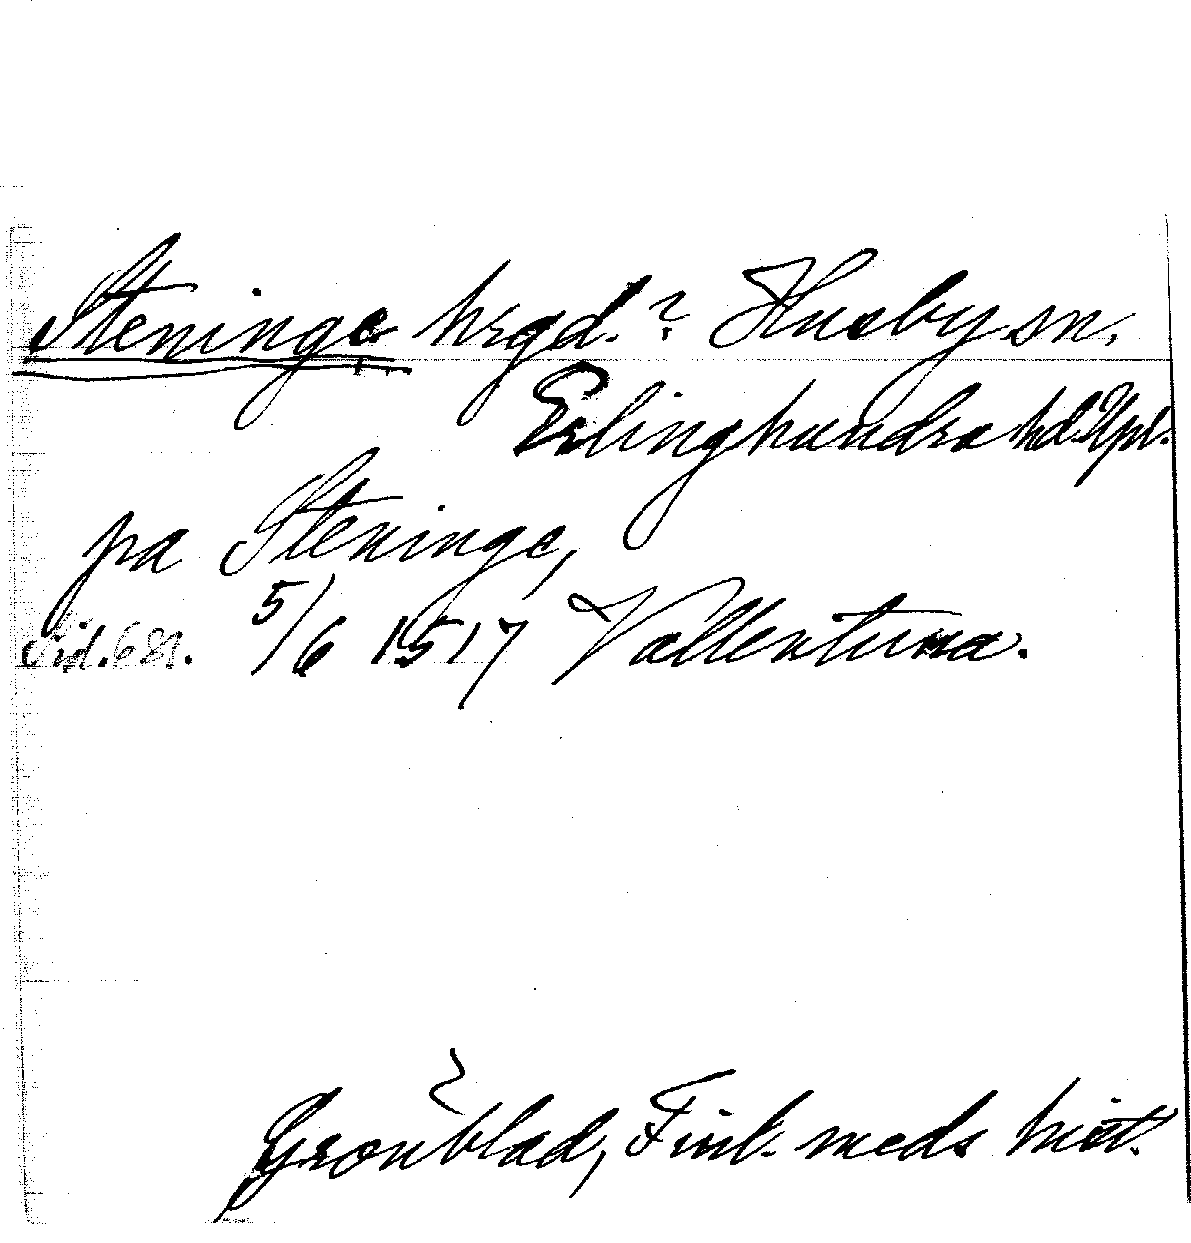 Steninge hrgd.? Husby sn.
Erlinghundra hd. Upl.
pa Steninge,
Sid. 681. 5/6 1517 Vallentuna.
Grönblad, Finl. meds hist.